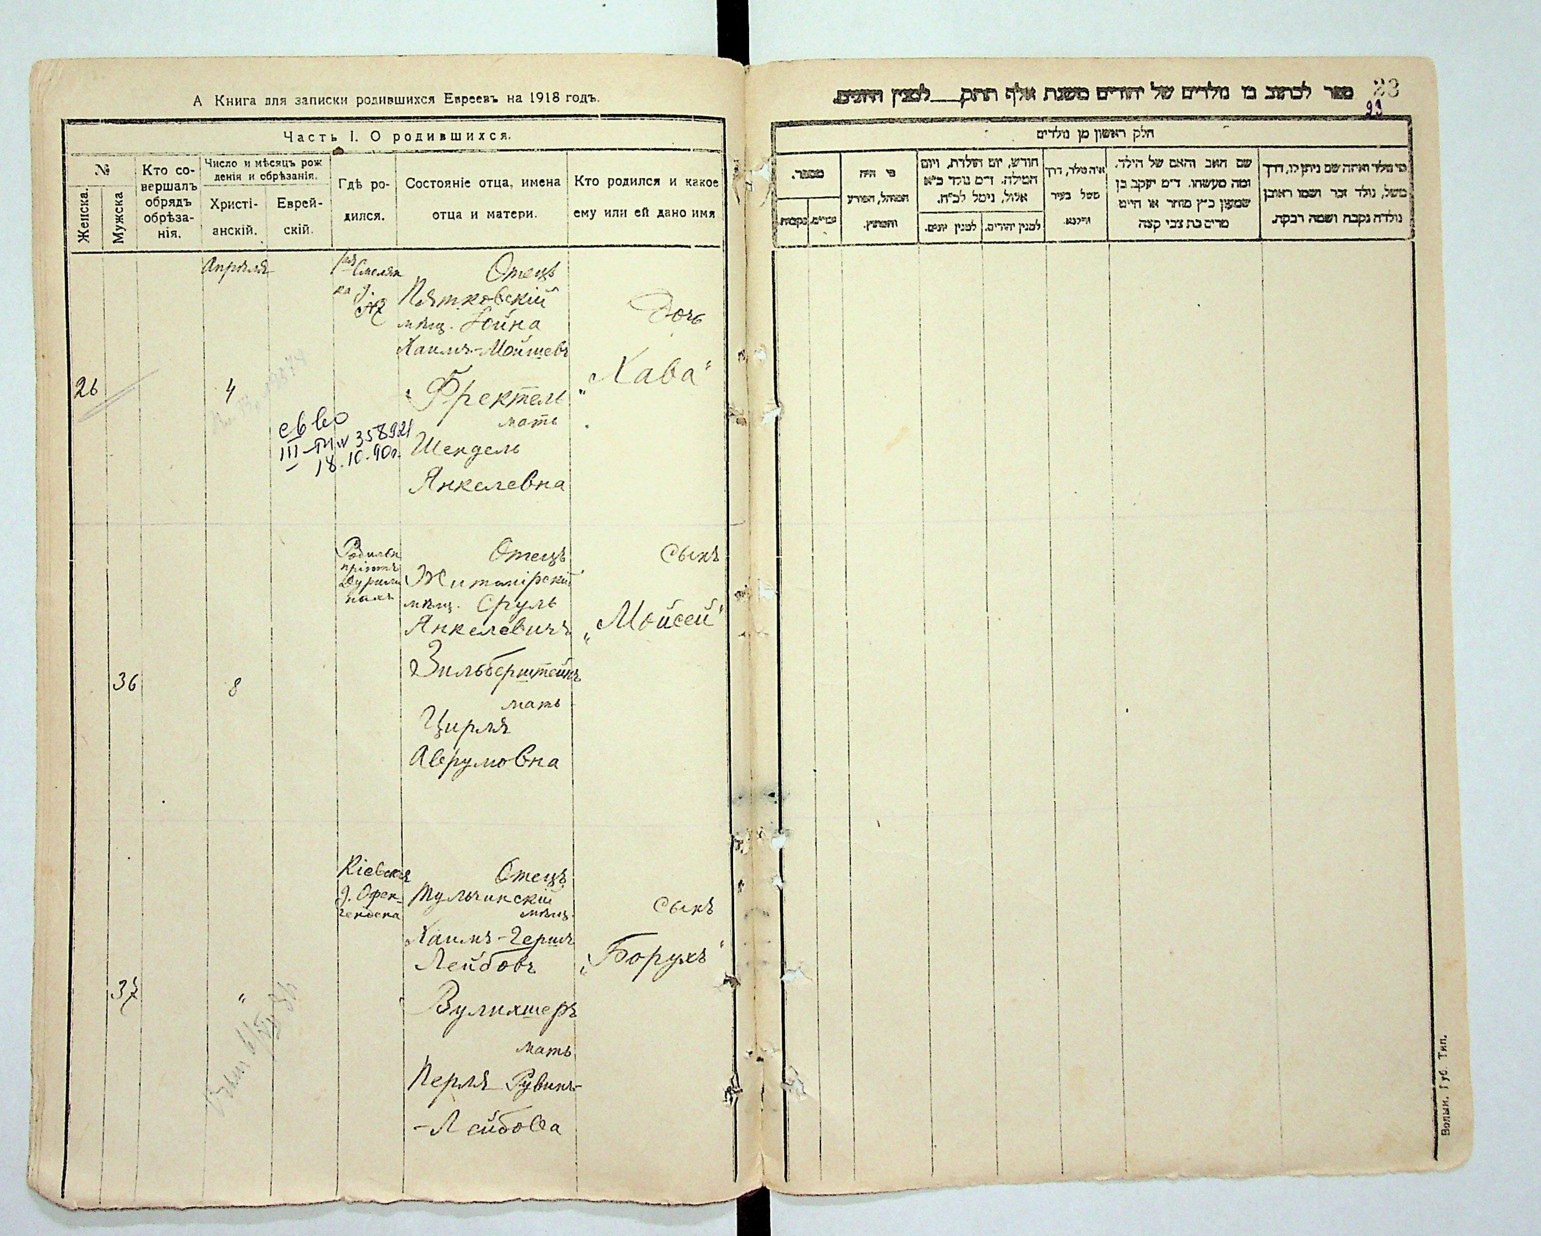 А Книга для записки родившихся Евреевъ на 1918 годъ.
Часть I. О родившихся.
№
Женска.
Мужска
Кто со-
вершалъ
обрядъ
обрѣза-
нія.
Число и мѣсяцъ рож
денія и обрѣзанія.
Христі-
анскій.
Еврей-
скій.
Гдѣ ро-
дился.
Состояніе отца, имена
отца и матери.
Кто родился и какое
ему или ей дано имя
Апрѣля
26
4
Отецъ
Пятковскій
мѣщ. Іойна
Хаимъ-Мойшевъ
Френтель
мать
Шендель
Янкелевна
Дочь
„Хава“
III
358921
18.10.90г.
36
8
Отецъ
Житомірскій
мѣщ. Сруль
Янкелевичъ
Зильберштейнъ
мать
Цирля
Аврумовна
сынъ
„Мойсей“
37
"
Кіевская
Отецъ
Тульчинскій
мѣщ.
Хаимъ-Гершъ
Лейбовъ
Вулихтеръ
мать
Перля Рувинъ-
-Лейбова
сынъ
„Борухъ“
23
23
ספר לכתוב בו נולדים של יהודים משנת אלף תתק___למנין היונים.
חלק ראשון מן נולדים
מספר.
נקבות
זכרים
מי היה
המוהל, הפורע
והמוצץ.
חודש, יום הולדת, ויום
המילה. ד״מ נולד כ״א
אלול, ניסל לכ״ח.
למנין יונים.
למנין יהודים.
איה נולד, דרך
משל בעיר
ווילנא
שם האב והאם של הילד.
ומה מעשהו. ד״מ יעקב בן
שמעון כ״ץ סוחר או חייט
מרים בת צבי קצה
מי נולד ואיזה שם ניתן לו, דרך
משל, נולד זכר ושמו ראובן
נולדה נקבה ושמה רבקה.
Волын. Губ. Тип.